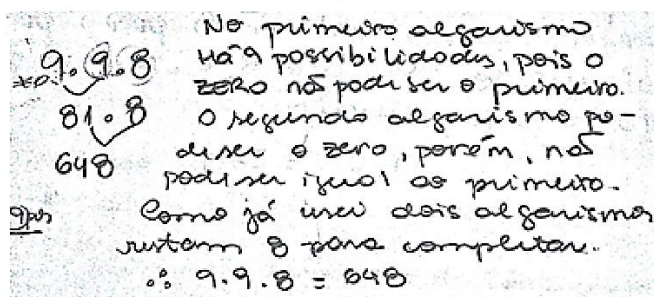 No primeiro algarismo
9.9.8 Há 9 possibilidades, pois o
≠0 zero não pode ser o primeiro.
81.8 O segundo algarismo po-
648 de ser o zero, porém, não
pode ser igual ao primeiro.
Como já usei dois algarismos
restam 8 para completar.
∴ 9.9.8 = 648